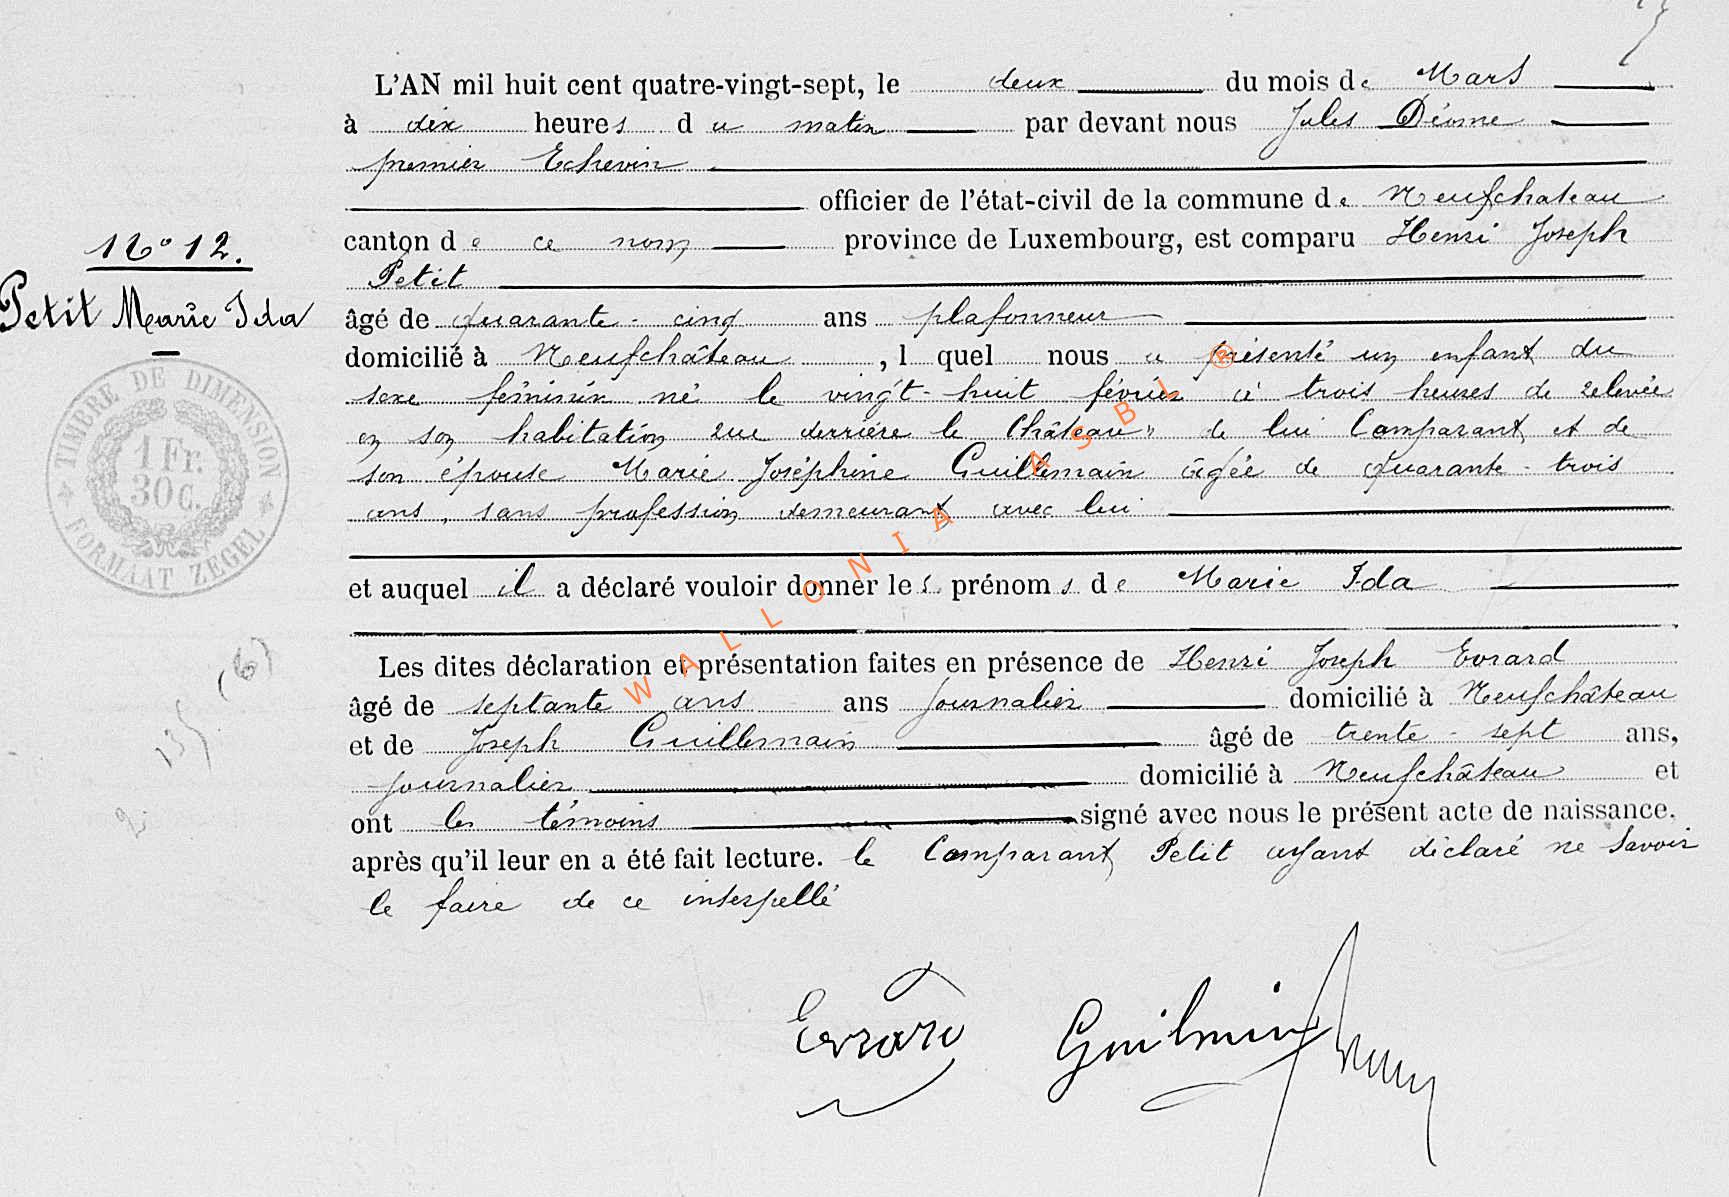 L'AN mil huit cent quatre-vingt-sept, le deux du mois de Mars
à dix heures du matin par devant nous Jules Déome
premier Echevin
officier de l'état-civil de la commune de Neufchateau
canton de ce nom province de Luxembourg, est comparu Henri Joseph
Petit
âgé de quarante-cinq ans plafonneur
domicilié à Neufchâteau, l quel nous a présenté un enfant du
sexe féminin né le vingt-huit février à trois heures de relevée
en son habitation rue derrière le Château" de lui Comparant et de
son épouse Marie Joséphine Guillemain âgée de quarante-trois
ans, sans profession demeurant avec lui
et auquel il a déclaré vouloir donner les prénoms de Marie Ida
Les dites déclaration et présentation faites en présence de Henri Joseph Evrard
âgé de septante ans ans journalier domicilié à Neufchâteau
et de Joseph Guillemain âgé de trente-sept ans,
journalier domicilié à Neufchâteau et
ont les témoins signé avec nous le présent acte de naissance.
après qu'il leur en a été fait lecture. le Comparant Petit ayant déclaré ne savoir
le faire de ce interpellé
Evrard Guilmin
No 12.
Petit Marie Ida
TIMBRE DE DIMENSION
1 Fr.
30 C.
FORMAAT ZEGEL
WALLONIA ASBL ®